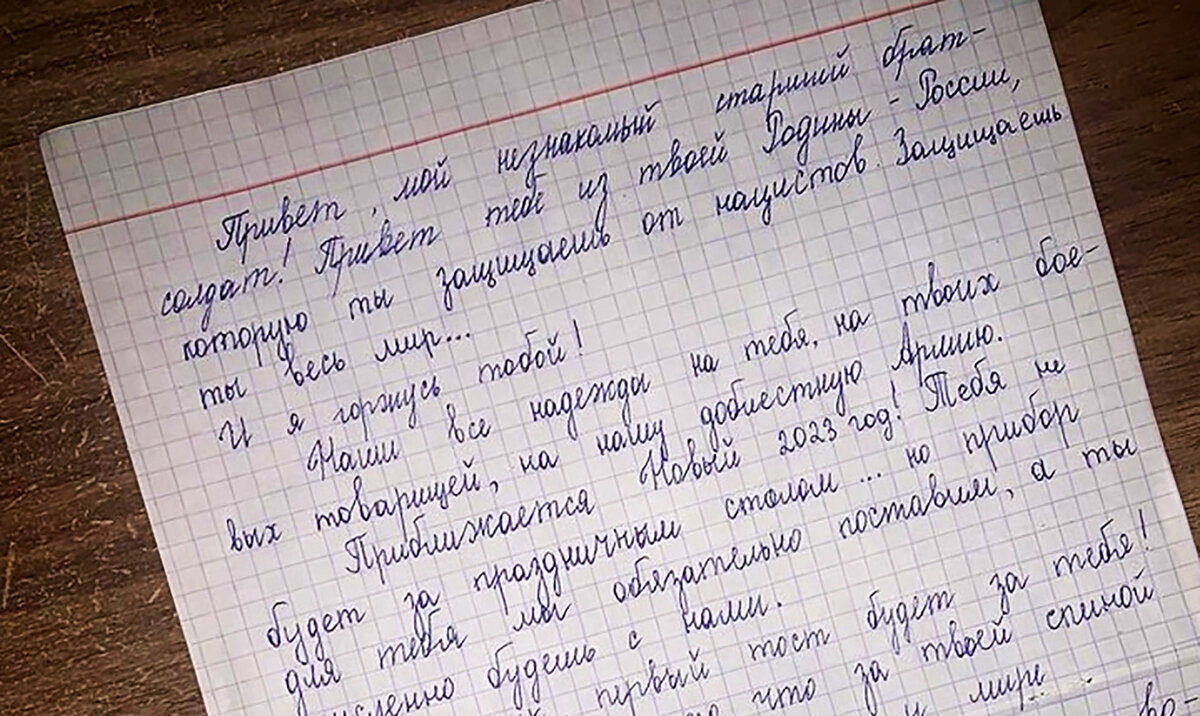 Привет, мой незнакомый старший брат-
солдат! Привет тебе из твоей Родины - России,
которую ты защищаешь от нацистов. Защищаешь
ты весь мир...
И я горжусь тобой!
Наши все надежды на тебя, на твоих бое-
вых товарищей, на нашу доблестную Армию.
Приближается Новый 2023 год! Тебя не
будет за праздничным столом... но прибор
для тебя мы обязательно поставим, а ты
мысленно будешь с нами.
первый тост будет за тебя!
что за твоей спиной
и мире
во-